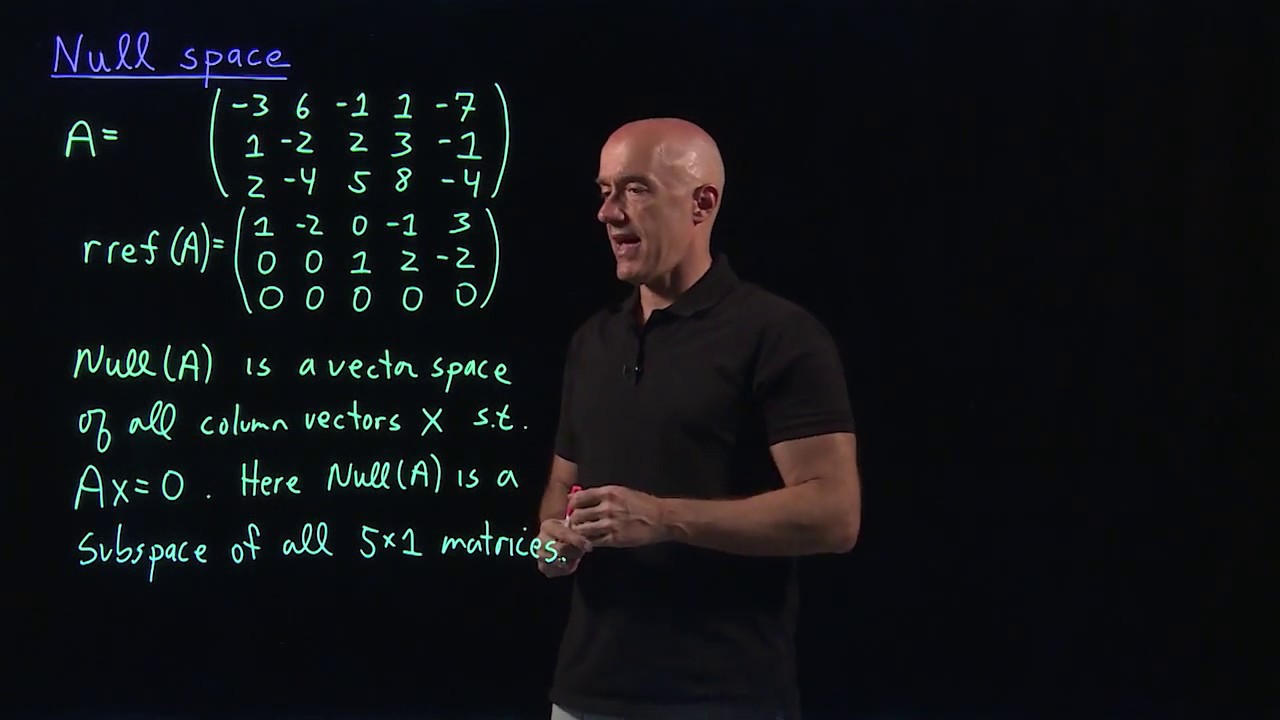 Null space
A= (-3 6 -1 1 -7
1 -2 2 3 -1
2 -4 5 8 -4)
rref(A)= (1 -2 0 -1 3
0 0 1 2 -2
0 0 0 0 0)
Null(A) is a vector space
of all column vectors x s.t.
Ax=0. Here Null(A) is a
subspace of all 5×1 matrices.